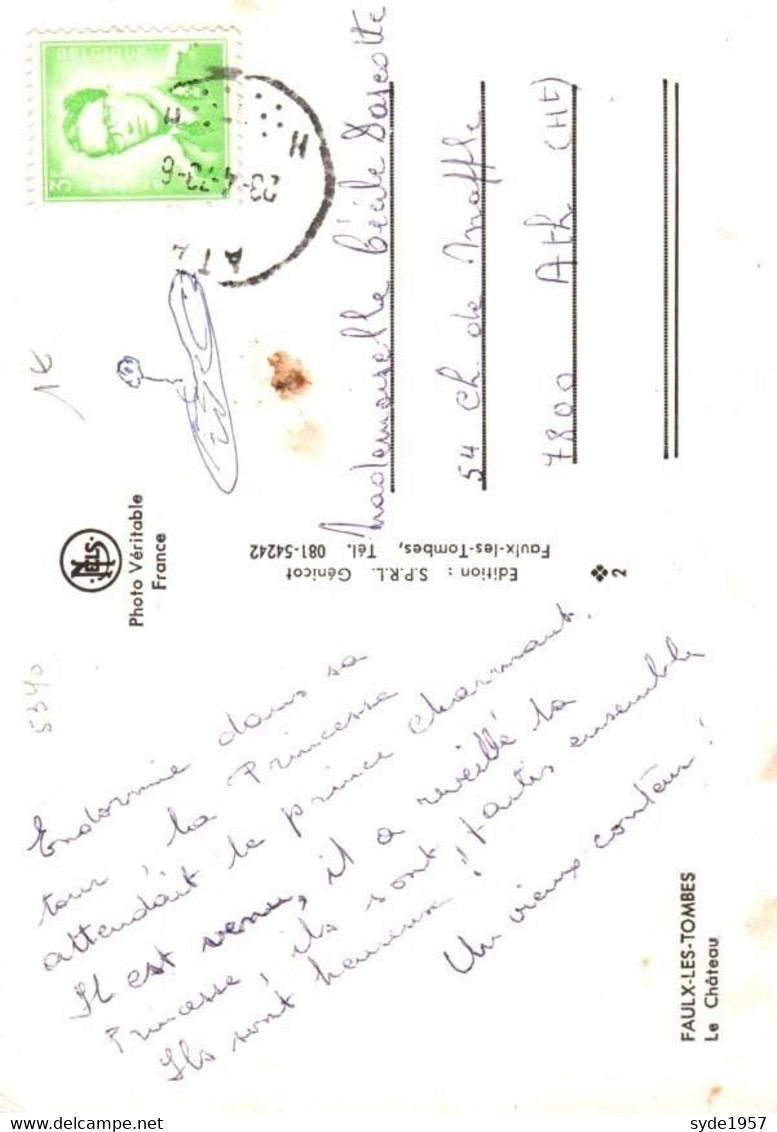 FAULX-LES-TOMBES
Le Château
Endormie dans sa
tour, la Princesse
attendait le prince charmant.
Il est venu, il a réveillé la
Princesse, ils sont partis ensemble
Ils sont heureux !!
Un vieux conteur !
NELS
Photo Véritable
France
Edition : S.P.R.L. Génicot
Faulx-les-Tombes, Tél. 081-54242
2
BELGIQUE
3F
BELGIE
ATH
23-4-73-6
H H
Mademoiselle Cécile Dascotte
54 ch. de Maffle
7800 Ath (Ht)
1€
5340
syde1957